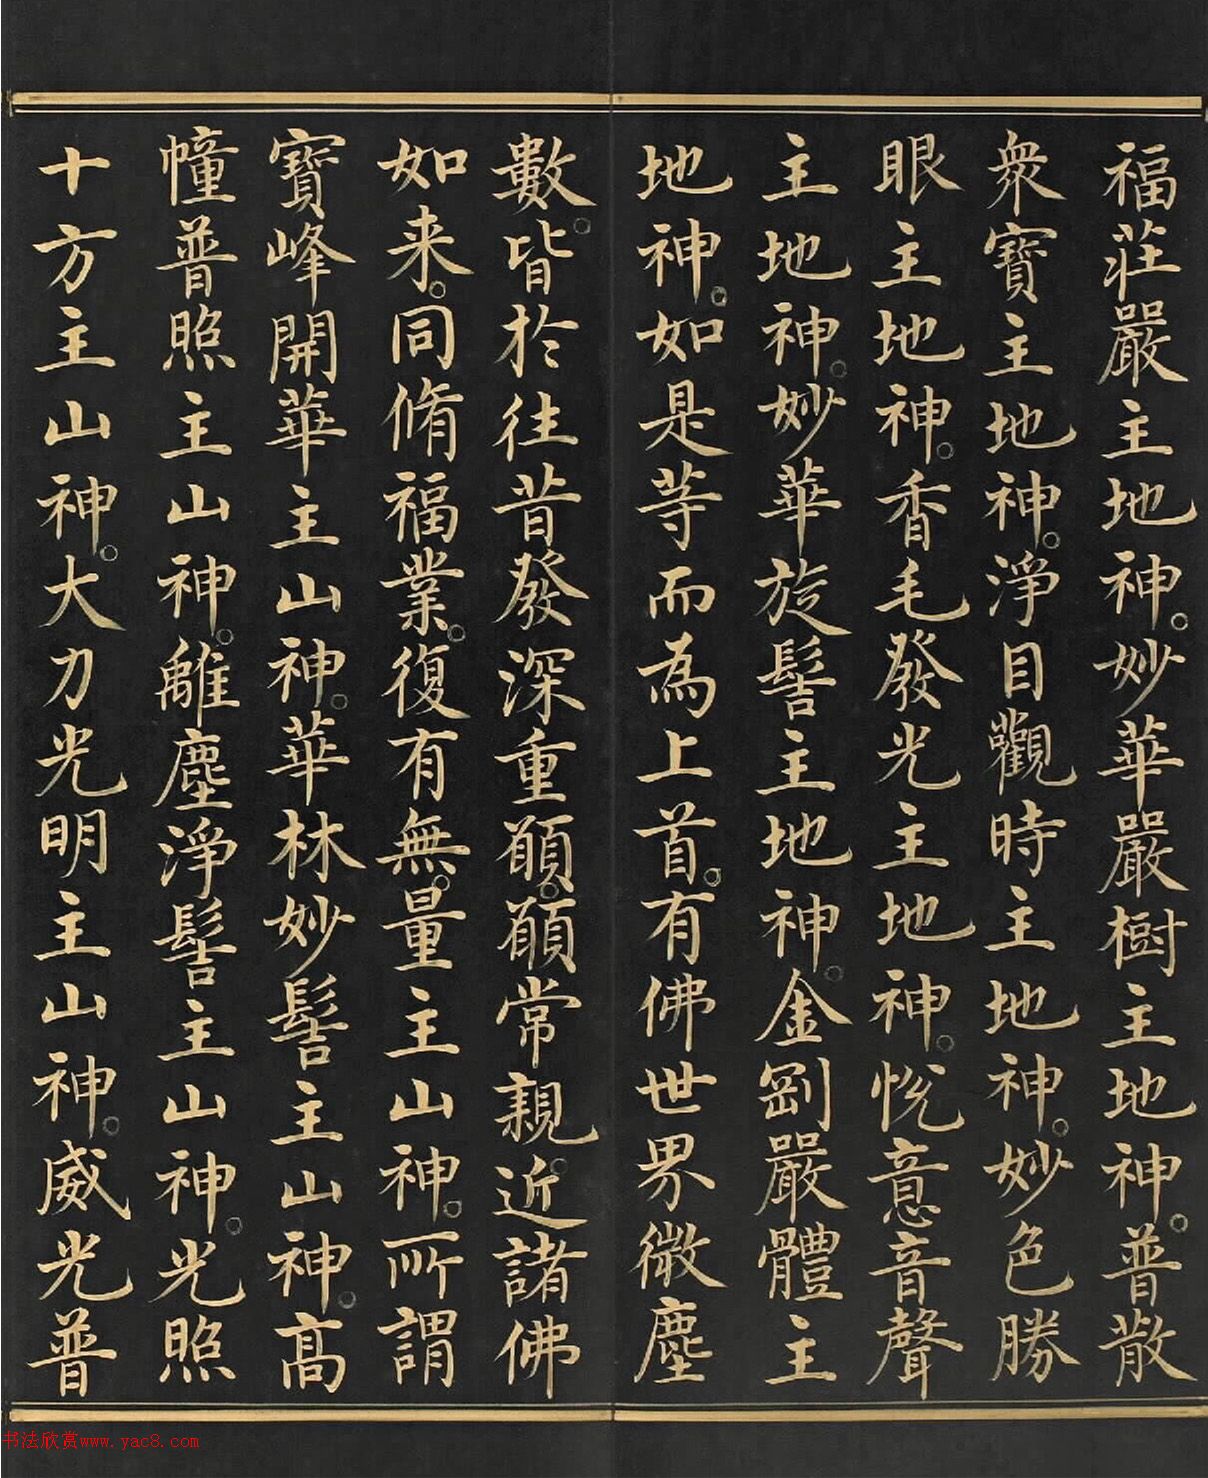 福莊嚴主地神。妙華嚴樹主地神。普散
衆寶主地神。淨目觀時主地神。妙色勝
眼主地神。香毛發光主地神。悅意音聲
主地神。妙華旋髻主地神。金剛嚴體主
地神。如是等而為上首。有佛世界微塵
數。皆於往昔發深重願。願常親近。諸佛
如来。同脩福業。復有無。量主山神。所謂
寶峰開華主山神。華林妙髻主山神。高
幢普照主山神。離塵淨髻主山神。光照
十方主山神。大力光明主山神。威光普
书法欣赏www.yac8.com